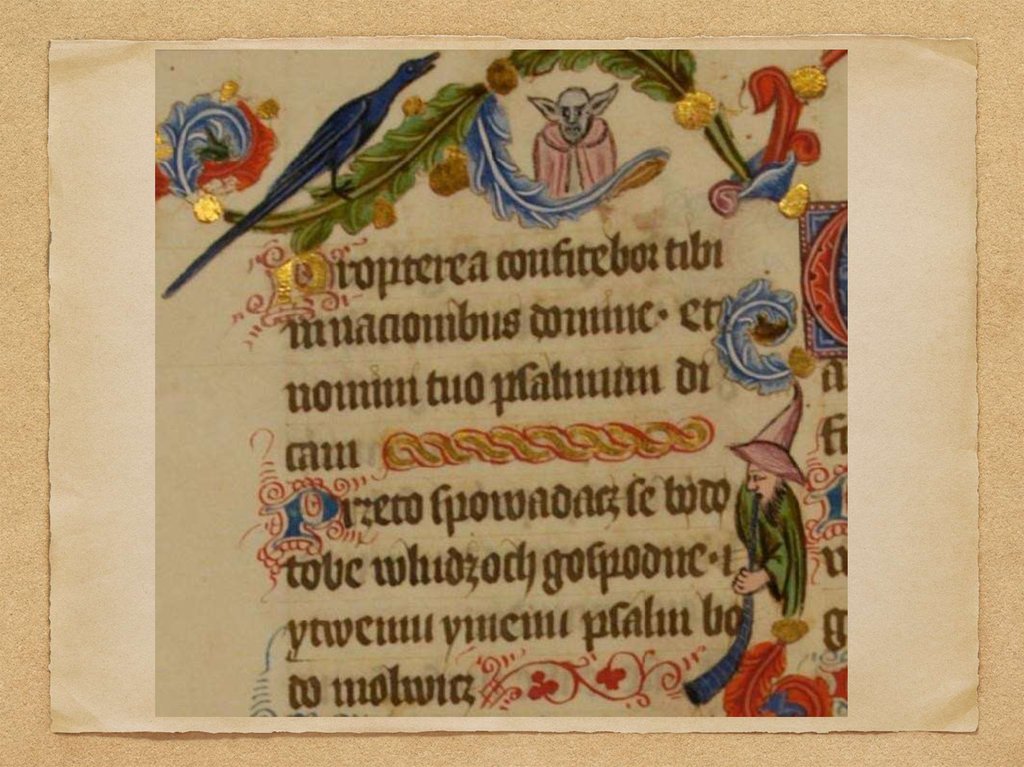 Propterea confitebor tibi
in nacionibus domine · et
nomini tuo psalmum di
cam
Przeto spowadacz se bødø
tobe wludzoch gospodne · i
ytwemu ymenu psalm bø
dø molwicz